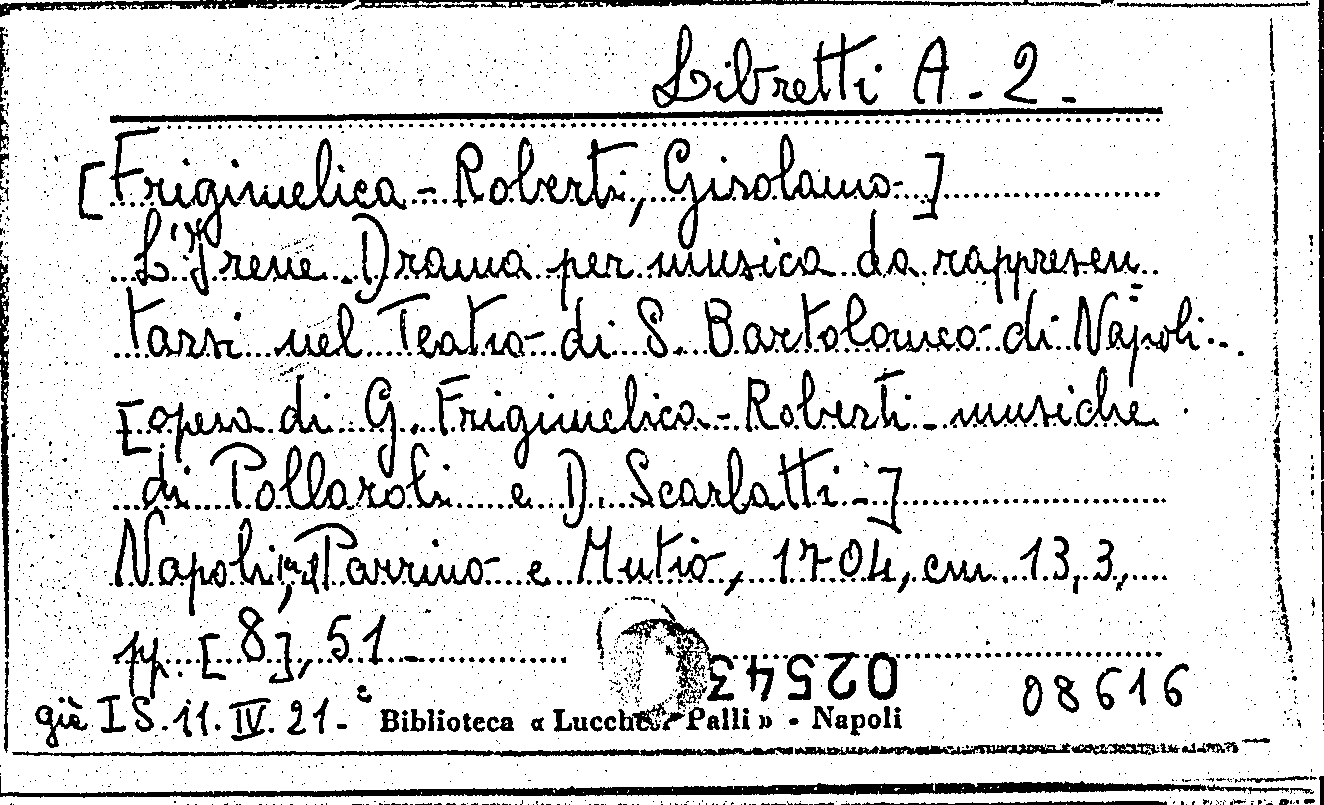 Libretti A - 2 -
[Frigimelica - Roberti, Girolamo - ]
L'Irene Drama per musica da rappresen=
tarsi nel Teatro di S. Bartolomeo di Napoli
[opera di G. Frigimelica - Roberti - musiche
di Pollaroli e D. Scarlatti - ]
Napoli, Parrino e Mutio, 1704, cm. 13,3,
pp. [8], 51 -
02543
08616
già I S. 11. IV. 21 - c
Biblioteca « Lucchesi Palli » - Napoli